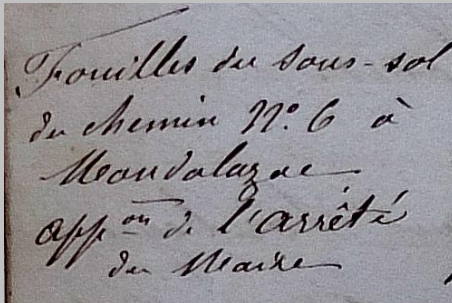 Fouilles du sous-sol
du chemin N° 6 à
Mondalazac
app.on de l'arrêté
du Maire